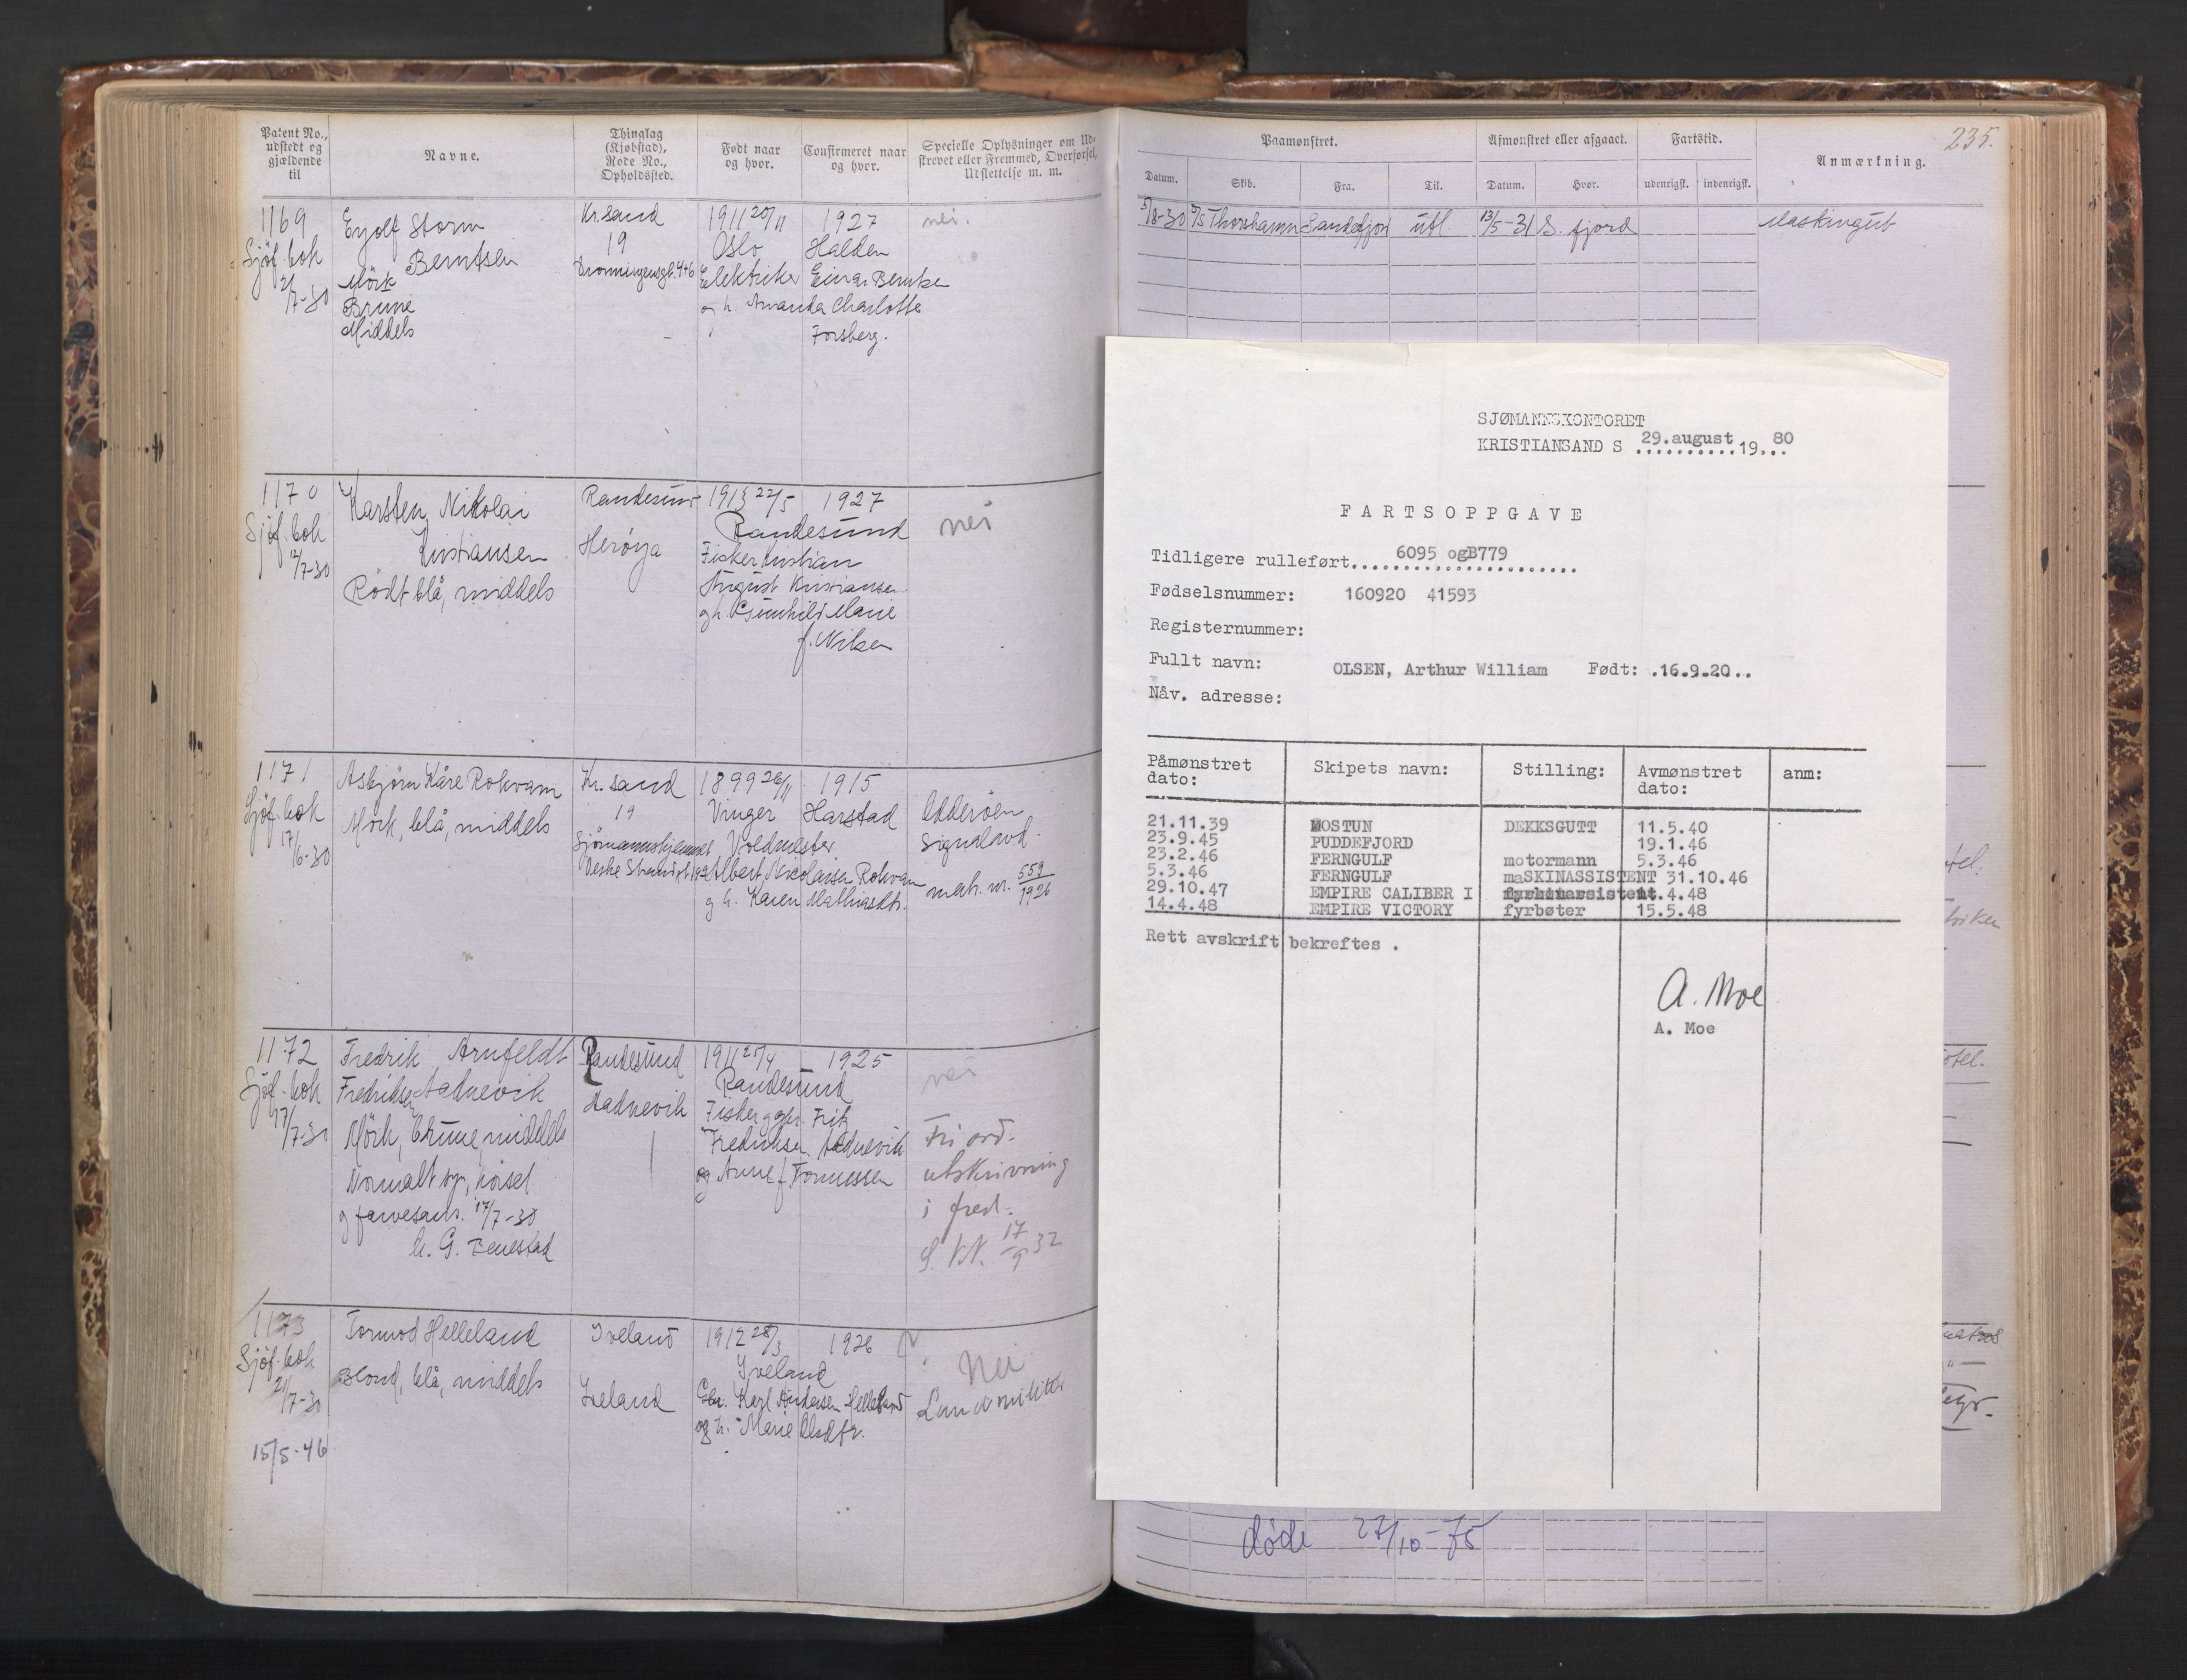 Patent No., udstedt og gjældende til
Navne.
Thinglag (Kjøbstad), Rode No., Opholdssted.
Født naar og hvor.
Confirmeret naar og hvor.
Specielle Oplysninger om Udstrevet eller Fremmed, Overførsel, Udslettelse m. m.
1169
Sjöf. bok
21/7-30
Eyolf Storm
Berntsen
Mörk
Brune
Middels
Kr.sand
19
Dronningensgt. 46
1911 20/11
Oslo
1927
Halden
Elektriker Einar Berntsen
og h. Amanda Charlotte
Forsberg.
nei.
1170
Sjöf. bok
12/7-30
Karsten Nikolai
Kristiansen
Rödt blå, middels
Randesund
Herøya
1913 22/5
1927
Randesund
Fisker Kristian
August Kristiansen
g h. Gunhild Marie
f. Nilsen
nei
1171
Sjöf. bok
17/6-30
Asbjørn Kåre Rokvam
Mörk, blå, middels
Kr. sand
19
Sjömannshjemmet
Vestre Strandgt.
1899 26/11
Vinger
1915
Harstad
Voldmester
Albert Nicolaisen Rokvam
g h. Karen Mathiasdtr.
Odderøen
Signalavd.
matr. nr. 559/1926
1172
Sjöf. bok
17/7-30
Fredrik Arnfeldt
Fredriksen Aadnevik
Mörk, brune, middels
Normalt syn, hörsel
g farvesans. 17/7-30
G. Benestad
Randesund
Aadnevik
1911 25/4
1925
Randesund
Fisker g gbr. Frits
Fredriksen Aadnevik
og Anne f Tønnessen
nei
Fri ord.
utskrivning
i fred.
17/9 32
1173
Sjöf. bok
21/7-30
15/5-46
Tormod Helleland
Blond, blå, middels
Iveland
Iveland
1912 28/3
1926
Iveland
Gbr. Karl Andersen Helleland
og h. Marie Olsdtr.
Nei
Landmilitær
Paamønstret.
Afmønstret eller afgaaet.
Fartstid.
Anmærkning.
235.
Datum.
Skib.
Fra.
Til.
Datum.
Hvor.
udenrigsk.
indenrigsk.
5/8-30 D/S Thorshamn Sandefjord utl 13/5-31 S. fjord Maskingut
SJØMANNSKONTORET
KRISTIANSAND S 29.august 19 80
FARTSOPPGAVE
Tidligere rulleført 6095 ogB779
Fødselsnummer: 160920 41593
Registernummer:
Fullt navn: OLSEN, Arthur William Født: .16.9.20..
Nåv. adresse:
Påmønstret dato:
Skipets navn:
Stilling:
Avmønstret dato:
anm:
21.11.39 MOSTUN DEKKSGUTT 11.5.40
23.9.45 PUDDEFJORD 19.1.46
23.2.46 FERNGULF motormann 5.3.46
5.3.46 FERNGULF maSKINASSISTENT 31.10.46
29.10.47 EMPIRE CALIBER I .4.48
14.4.48 EMPIRE VICTORY fyrbøter 15.5.48
Rett avskrift bekreftes .
A. Moe
A. Moe
døde 27/10-75